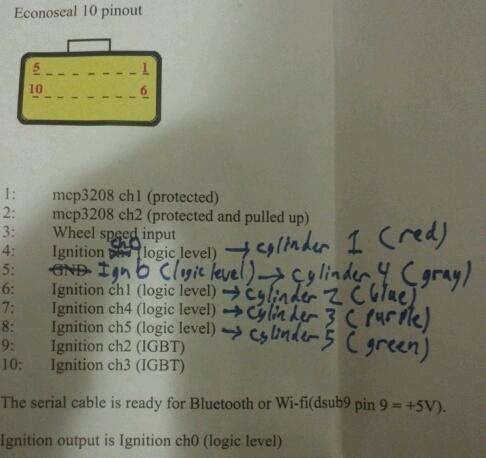 Econoseal 10 pinout
5 1
10 6
1: mcp3208 ch1 (protected)
2: mcp3208 ch2 (protected and pulled up)
3: Wheel speed input
4: Ignition ch0 (logic level) → cylinder 1 (red)
5: GND Ign 6 (logic level) → cylinder 4 (gray)
6: Ignition ch1 (logic level) → cylinder 2 (blue)
7: Ignition ch4 (logic level) → cylinder 3 (purple)
8: Ignition ch5 (logic level) → cylinder 5 (green)
9: Ignition ch2 (IGBT)
10: Ignition ch3 (IGBT)
The serial cable is ready for Bluetooth or Wi-fi(dsub9 pin 9 = +5V).
Ignition output is Ignition ch0 (logic level)